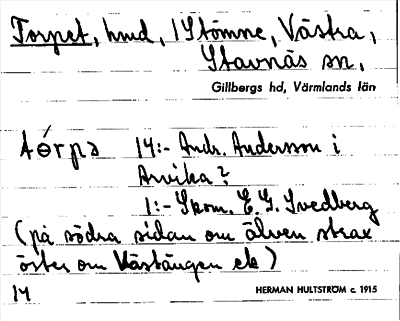 Torpet, hmd, 1 Stömne, Västra,
Stavnäs sn,
Gillbergs hd, Värmlands län
tórpə 14:- Andr. Andersson i
Arvika?
1:- Skom. E. G. Svedberg
(på södra sidan om älven strax
öster om Västängen ek)
14 HERMAN HULTSTRÖM c. 1915